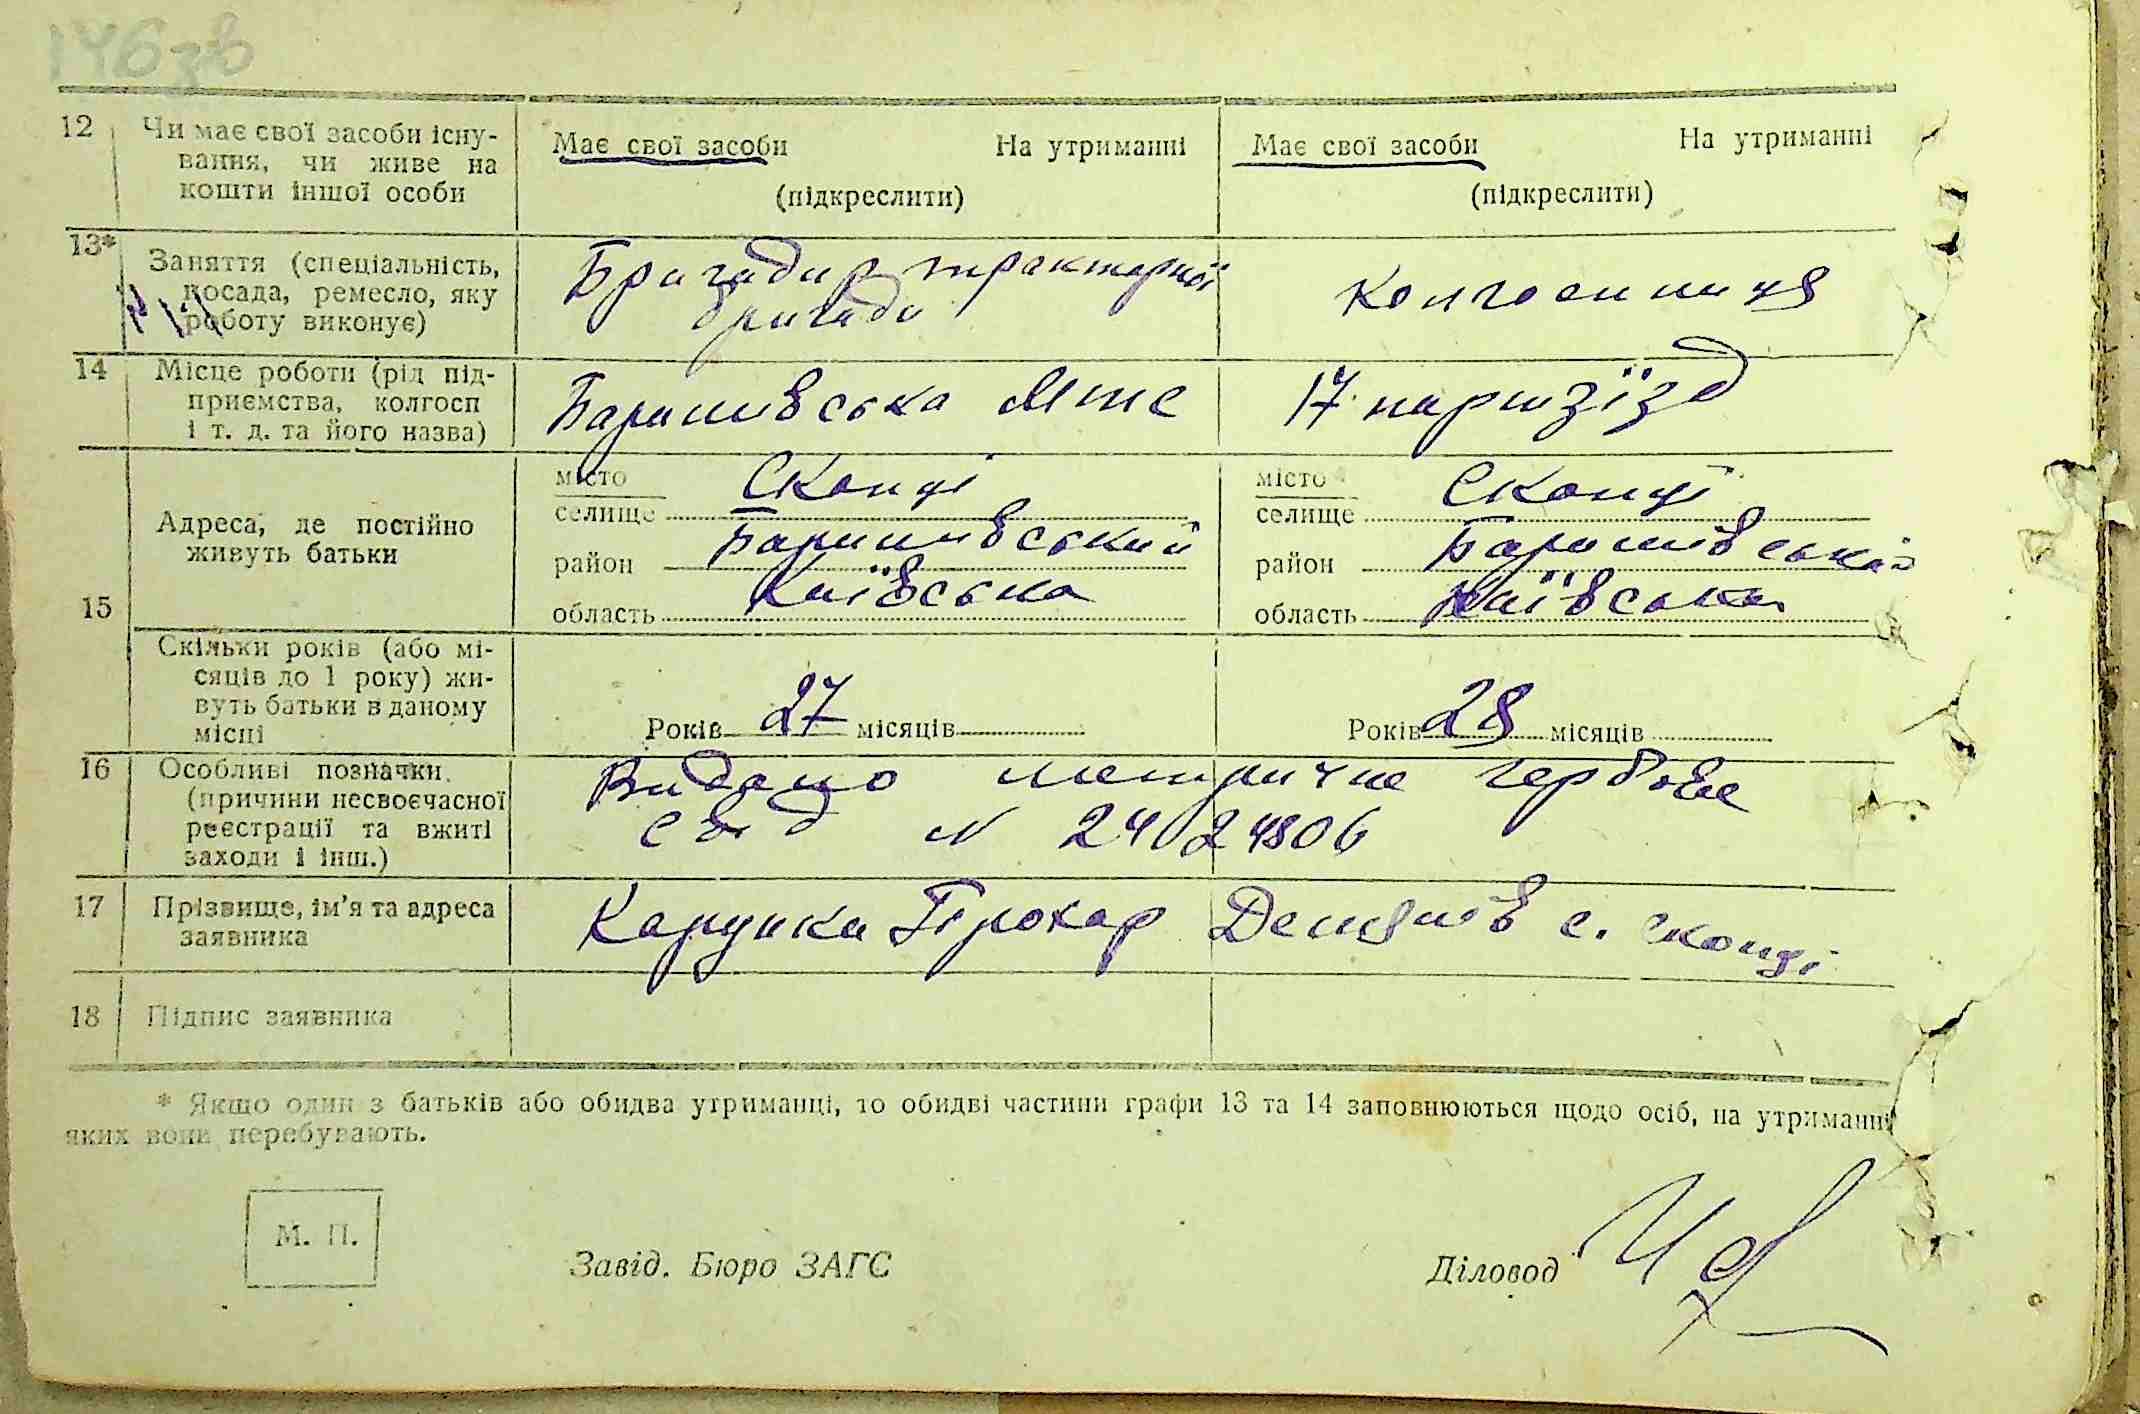 146зв
12 Чи має свої засоби існу-
вання, чи живе на
кошти іншої особи
Має свої засоби На утриманні
(підкреслити)
Має свої засоби На утриманні
(підкреслити)
13* Заняття (спеціальність,
посада, ремесло, яку
роботу виконує)
Бригадир тракторної
бригади
Колгоспниця
14 Місце роботи (рід під-
приємства, колгосп
і т. д. та його назва)
Баришівська Мтс
17 партзїзд
15 Адреса, де постійно
живуть батьки
місто
селище Скопці
район Баришівський
область Київська
місто
селище Скопці
район Баришівський
область Київська
Скільки років (або мі-
сяців до 1 року) жи-
вуть батьки в даному
місці
Років 27 місяців
Років 28 місяців
16 Особливі позначки
(причини несвоєчасної
реєстрації та вжиті
заходи і інш.)
Видано метричне гербове
свід N 2424806
17 Прізвище, ім'я та адреса
заявника
Карунка Прохар с. Скопці
18 Підпис заявника
* Якщо один з батьків або обидва утриманці, то обидві частини графи 13 та 14 заповнюються щодо осіб, на утриманні
яких вони перебувають.
М. П.
Завід. Бюро ЗАГС
Діловод